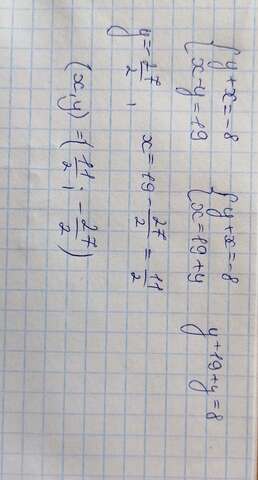 {y+x=-8 {y+x=-8 y+19+y=8
{x-y=19 {x=19+y
y=-27/2, x=19-27/2=11/2
(x,y)=(11/2; -27/2)